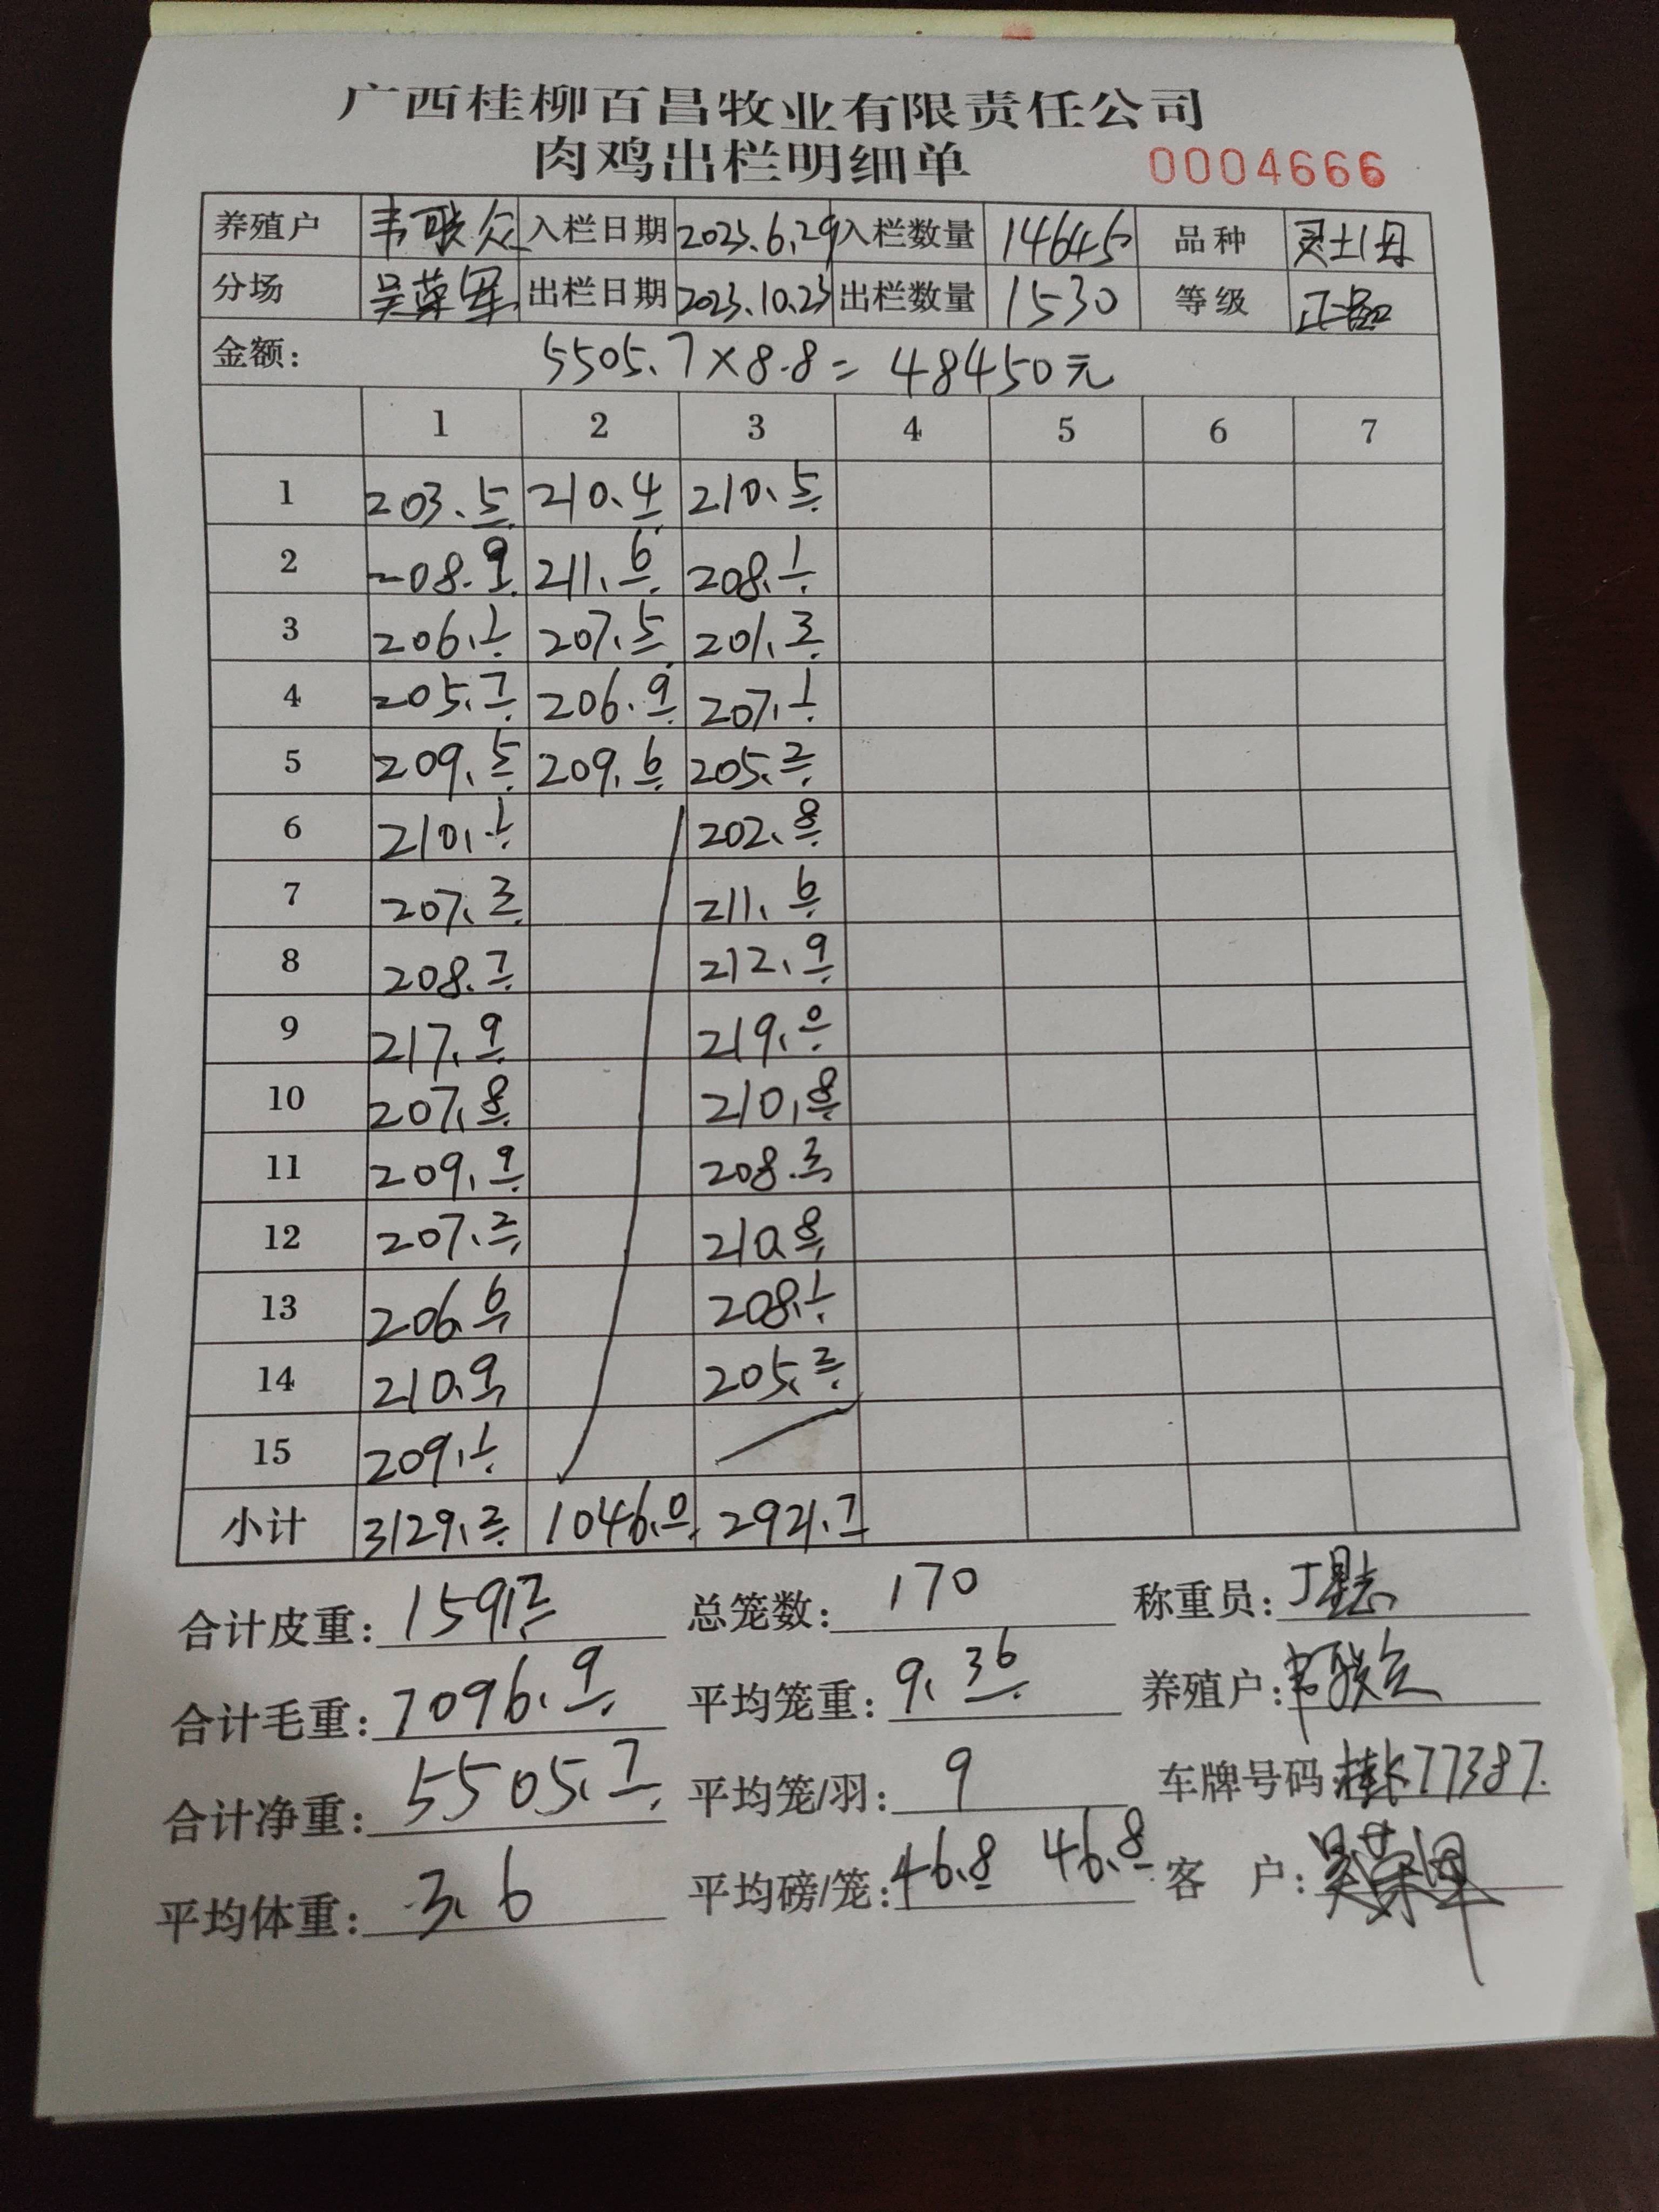 广西桂柳百昌牧业有限责任公司
肉鸡出栏明细单 0004666
养殖户 韦联众 入栏日期 2023.6.29 入栏数量 14645 品种 灵土1母
分场 吴荣军 出栏日期 2023.10.23 出栏数量 1530 等级 正品
金额： 5505.7×8.8=48450元
1 2 3 4 5 6 7
1 203.5 210.4 210.5
2 208.9 211.6 208.1
3 206.1 207.5 201.3
4 205.7 206.9 207.1
5 209.5 209.6 205.2
6 210.1 202.8
7 207.3 211.6
8 208.7 212.9
9 217.9 219.0
10 207.8 210.8
11 209.9 208.3
12 207.2 210.8
13 206.6 208.1
14 210.9 205.2
15 209.1
小计 3129.2 1046.0 2921.7
合计皮重： 1591.2 总笼数： 170 称重员：
合计毛重： 7096.9 平均笼重： 9.36 养殖户： 韦联众
合计净重： 5505.7 平均笼/羽： 9 车牌号码： 77387
平均体重： 3.6 平均磅/笼： 46.8 46.8 客 户： 吴荣军